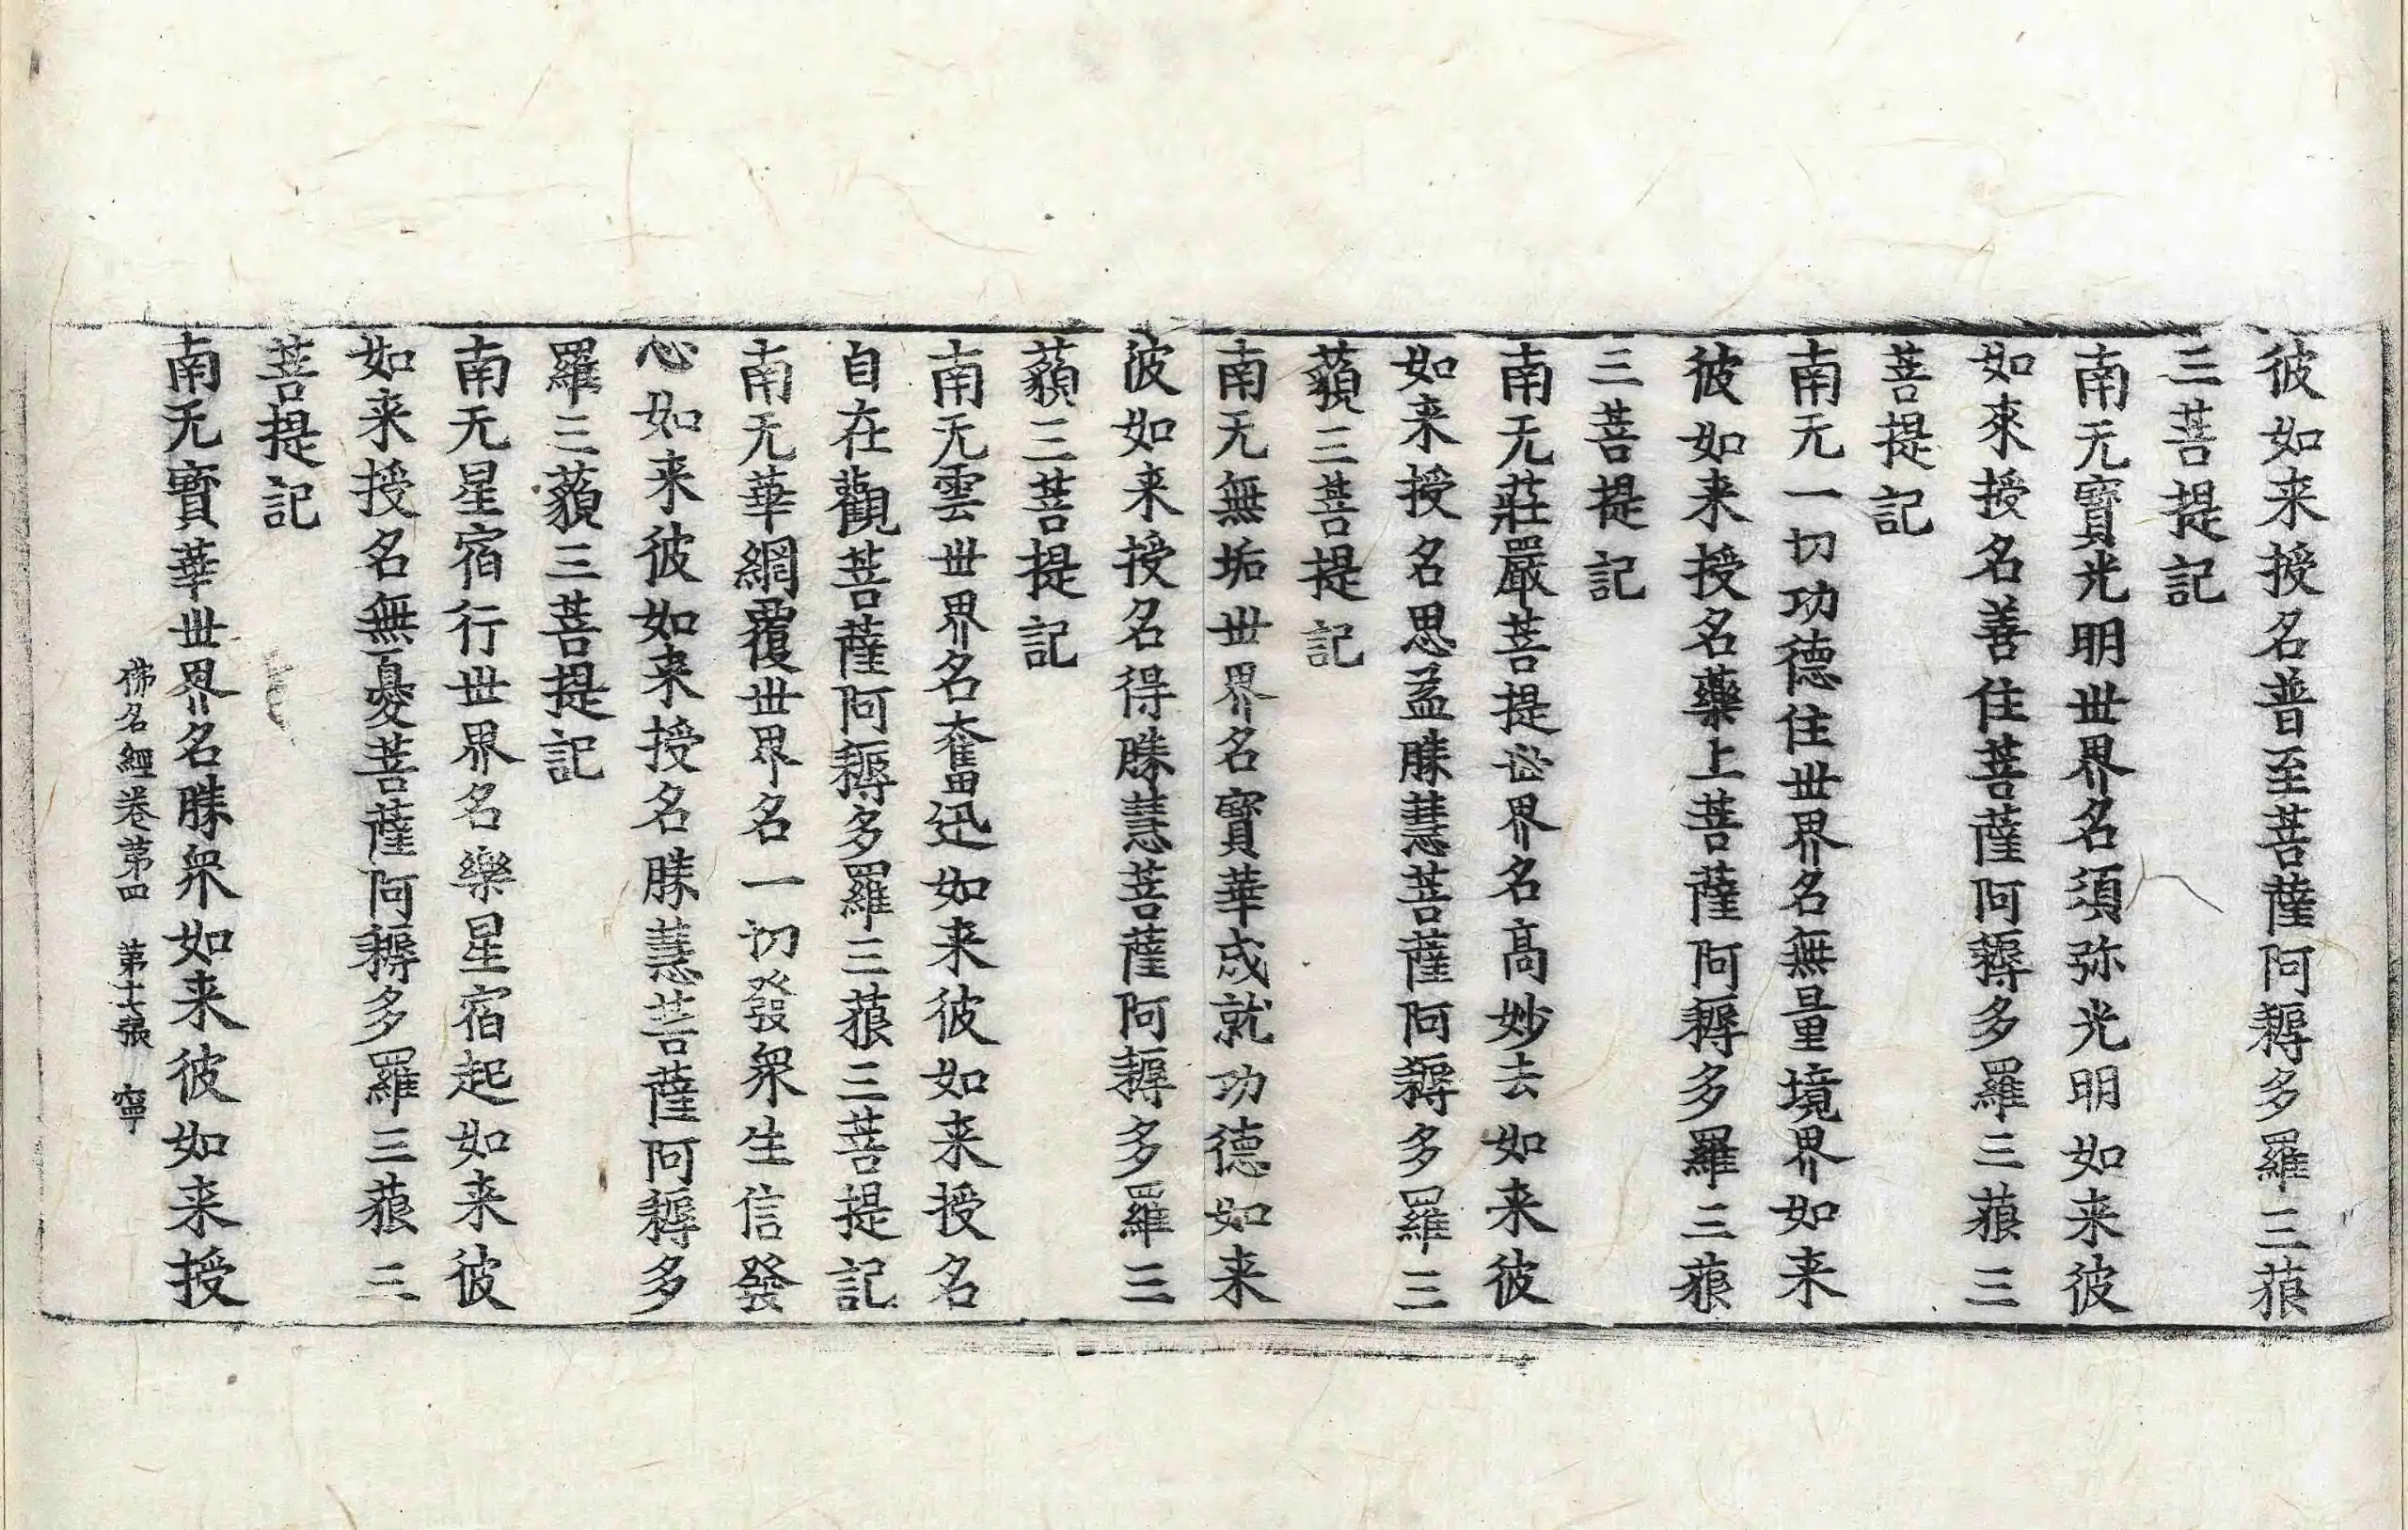 彼如来授名普至菩薩阿耨多羅三藐
三菩提記
南无寶光明世界名須弥光明如来彼
如來授名善住菩薩阿耨多羅三藐三
菩提記
南无一切功德住世界名無量境界如来
彼如来授名藥上菩薩阿耨多羅三藐
三菩提記
南无莊嚴菩提世界名高妙去如来彼
如来授名思益勝慧菩薩阿耨多羅三
藐三菩提記
南无無垢世界名寳華成就功德如来
彼如来授名得勝慧菩薩阿耨多羅三
藐三菩提記
南无雲世界名奮迅如来彼如来授名
自在觀菩薩阿耨多羅三藐三菩提記
南无華網覆世界名一切發衆生信發
心如来彼如来授名勝慧菩薩阿耨多
羅三藐三菩提記
南无星宿行世界名樂星宿起如来彼
如来授名無憂菩薩阿耨多羅三藐三
菩提記
南无寳華世界名勝衆如来彼如来授
佛名經卷第四 第十七張 寧